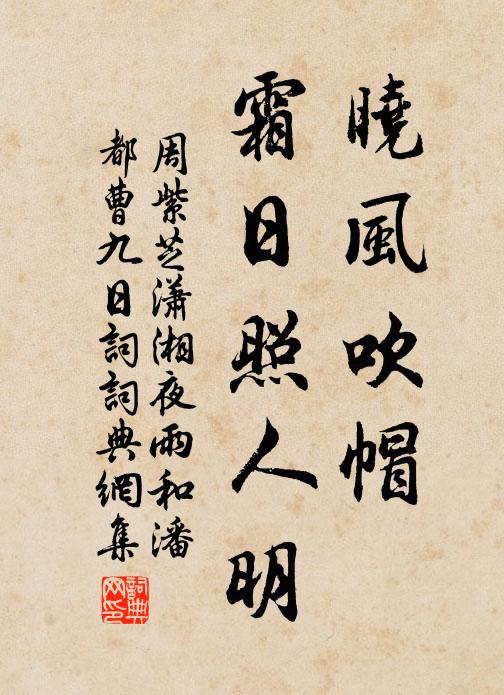 曉風吹帽
霜日照人明
周紫芝瀟湘夜雨和潘
都曹九日詞詞典網集
詞典
網印